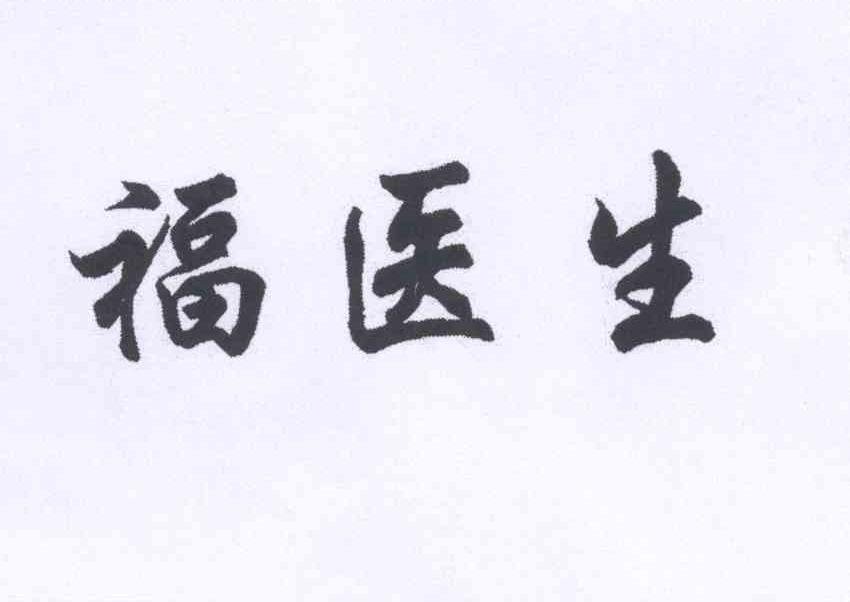 福医生